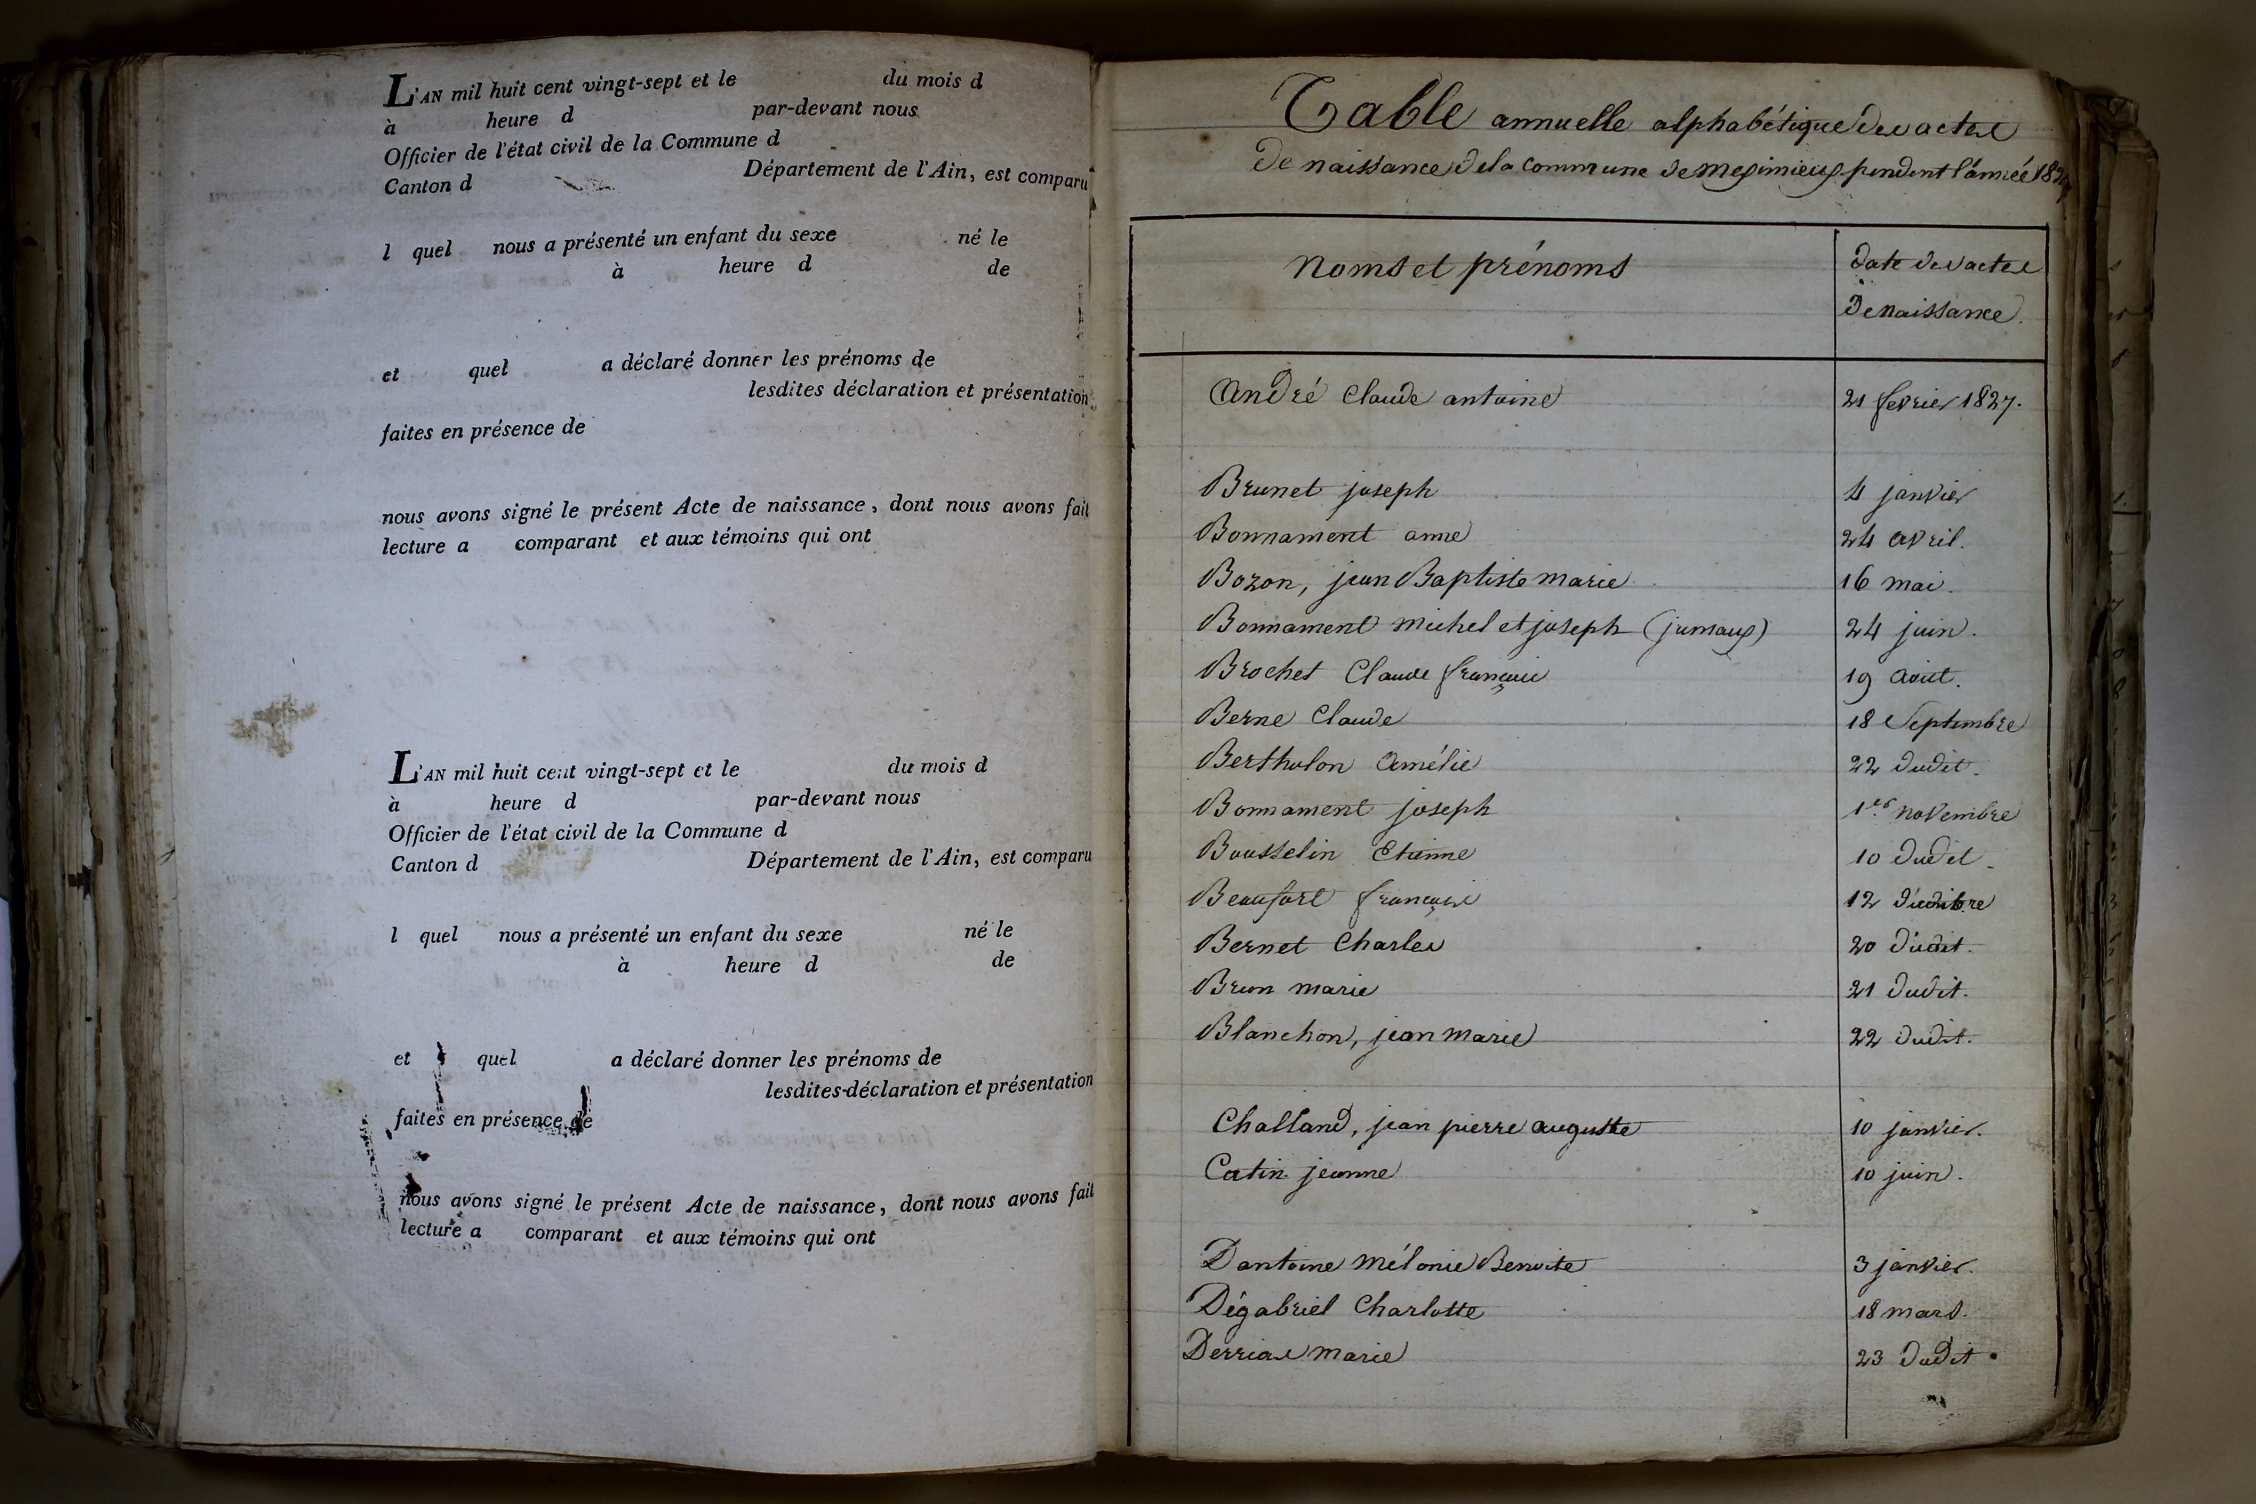 L'AN mil huit cent vingt-sept et le du mois d
à heure d par-devant nous
Officier de l'état civil de la Commune d
Canton d Département de l'Ain, est comparu
l quel nous a présenté un enfant du sexe né le
à heure d de
et quel a déclaré donner les prénoms de
lesdites déclaration et présentation
faites en présence de
nous avons signé le présent Acte de naissance, dont nous avons fait
lecture a comparant et aux témoins qui ont
L'AN mil huit cent vingt-sept et le du mois d
à heure d par-devant nous
Officier de l'état civil de la Commune d
Canton d Département de l'Ain, est comparu
l quel nous a présenté un enfant du sexe né le
à heure d de
et quel a déclaré donner les prénoms de
lesdites déclaration et présentation
faites en présence de
nous avons signé le présent Acte de naissance, dont nous avons fait
lecture a comparant et aux témoins qui ont
Table annuelle alphabétique des actes
de naissance de la commune de Meximieux pendent l'année 1827
Noms et prénoms date des actes
de naissance.
André Claude antoine 21 fevrier 1827.
Brunet joseph 4 janvier
Bonnament anne 24 avril.
Bozon, jean Baptiste marie 16 mai.
Bonnament michel et joseph (jumaux) 24 juin.
Brochet Claude françois 19 Août.
Berne Claude 18 Septembre
Bertholon Amélie 22 dudit.
Bonnament joseph 1er novembre
Bousselin Etienne 10 dudit
Beaufort 12
Bernet Charles 20 dudit.
Brun marie 21 dudit.
Blanchon, jean marie 22 dudit.
Challand, jean pierre auguste 10 janvier.
Catin jeanne 10 juin.
Dantoine Mélonie Benoite 3 janvier.
Dégabriel Charlotte 18 mars.
marie 23 dudit